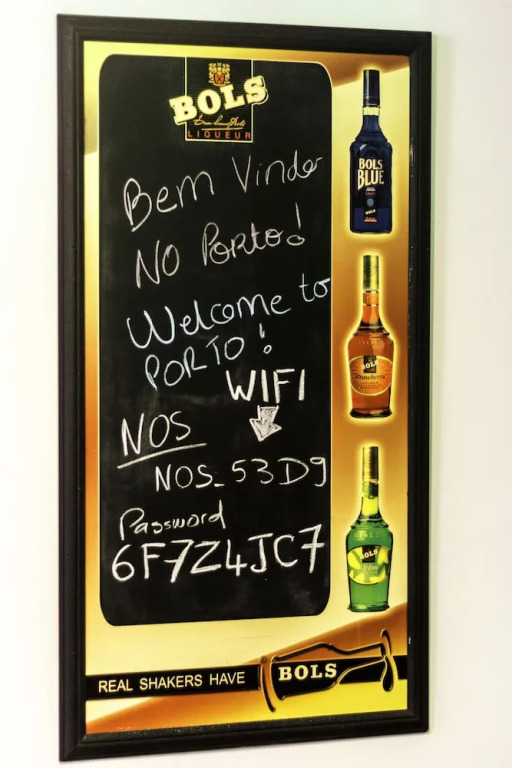 BOLS
LIQUEUR
Bem Vindo
NO Porto!
Welcome to
PORTO!
WIFI
NOS
NOS_53D9
Password
6F7Z4JC7
BOLS
BLUE
BOLS
Strawberry
BOLS
REAL SHAKERS HAVE BOLS